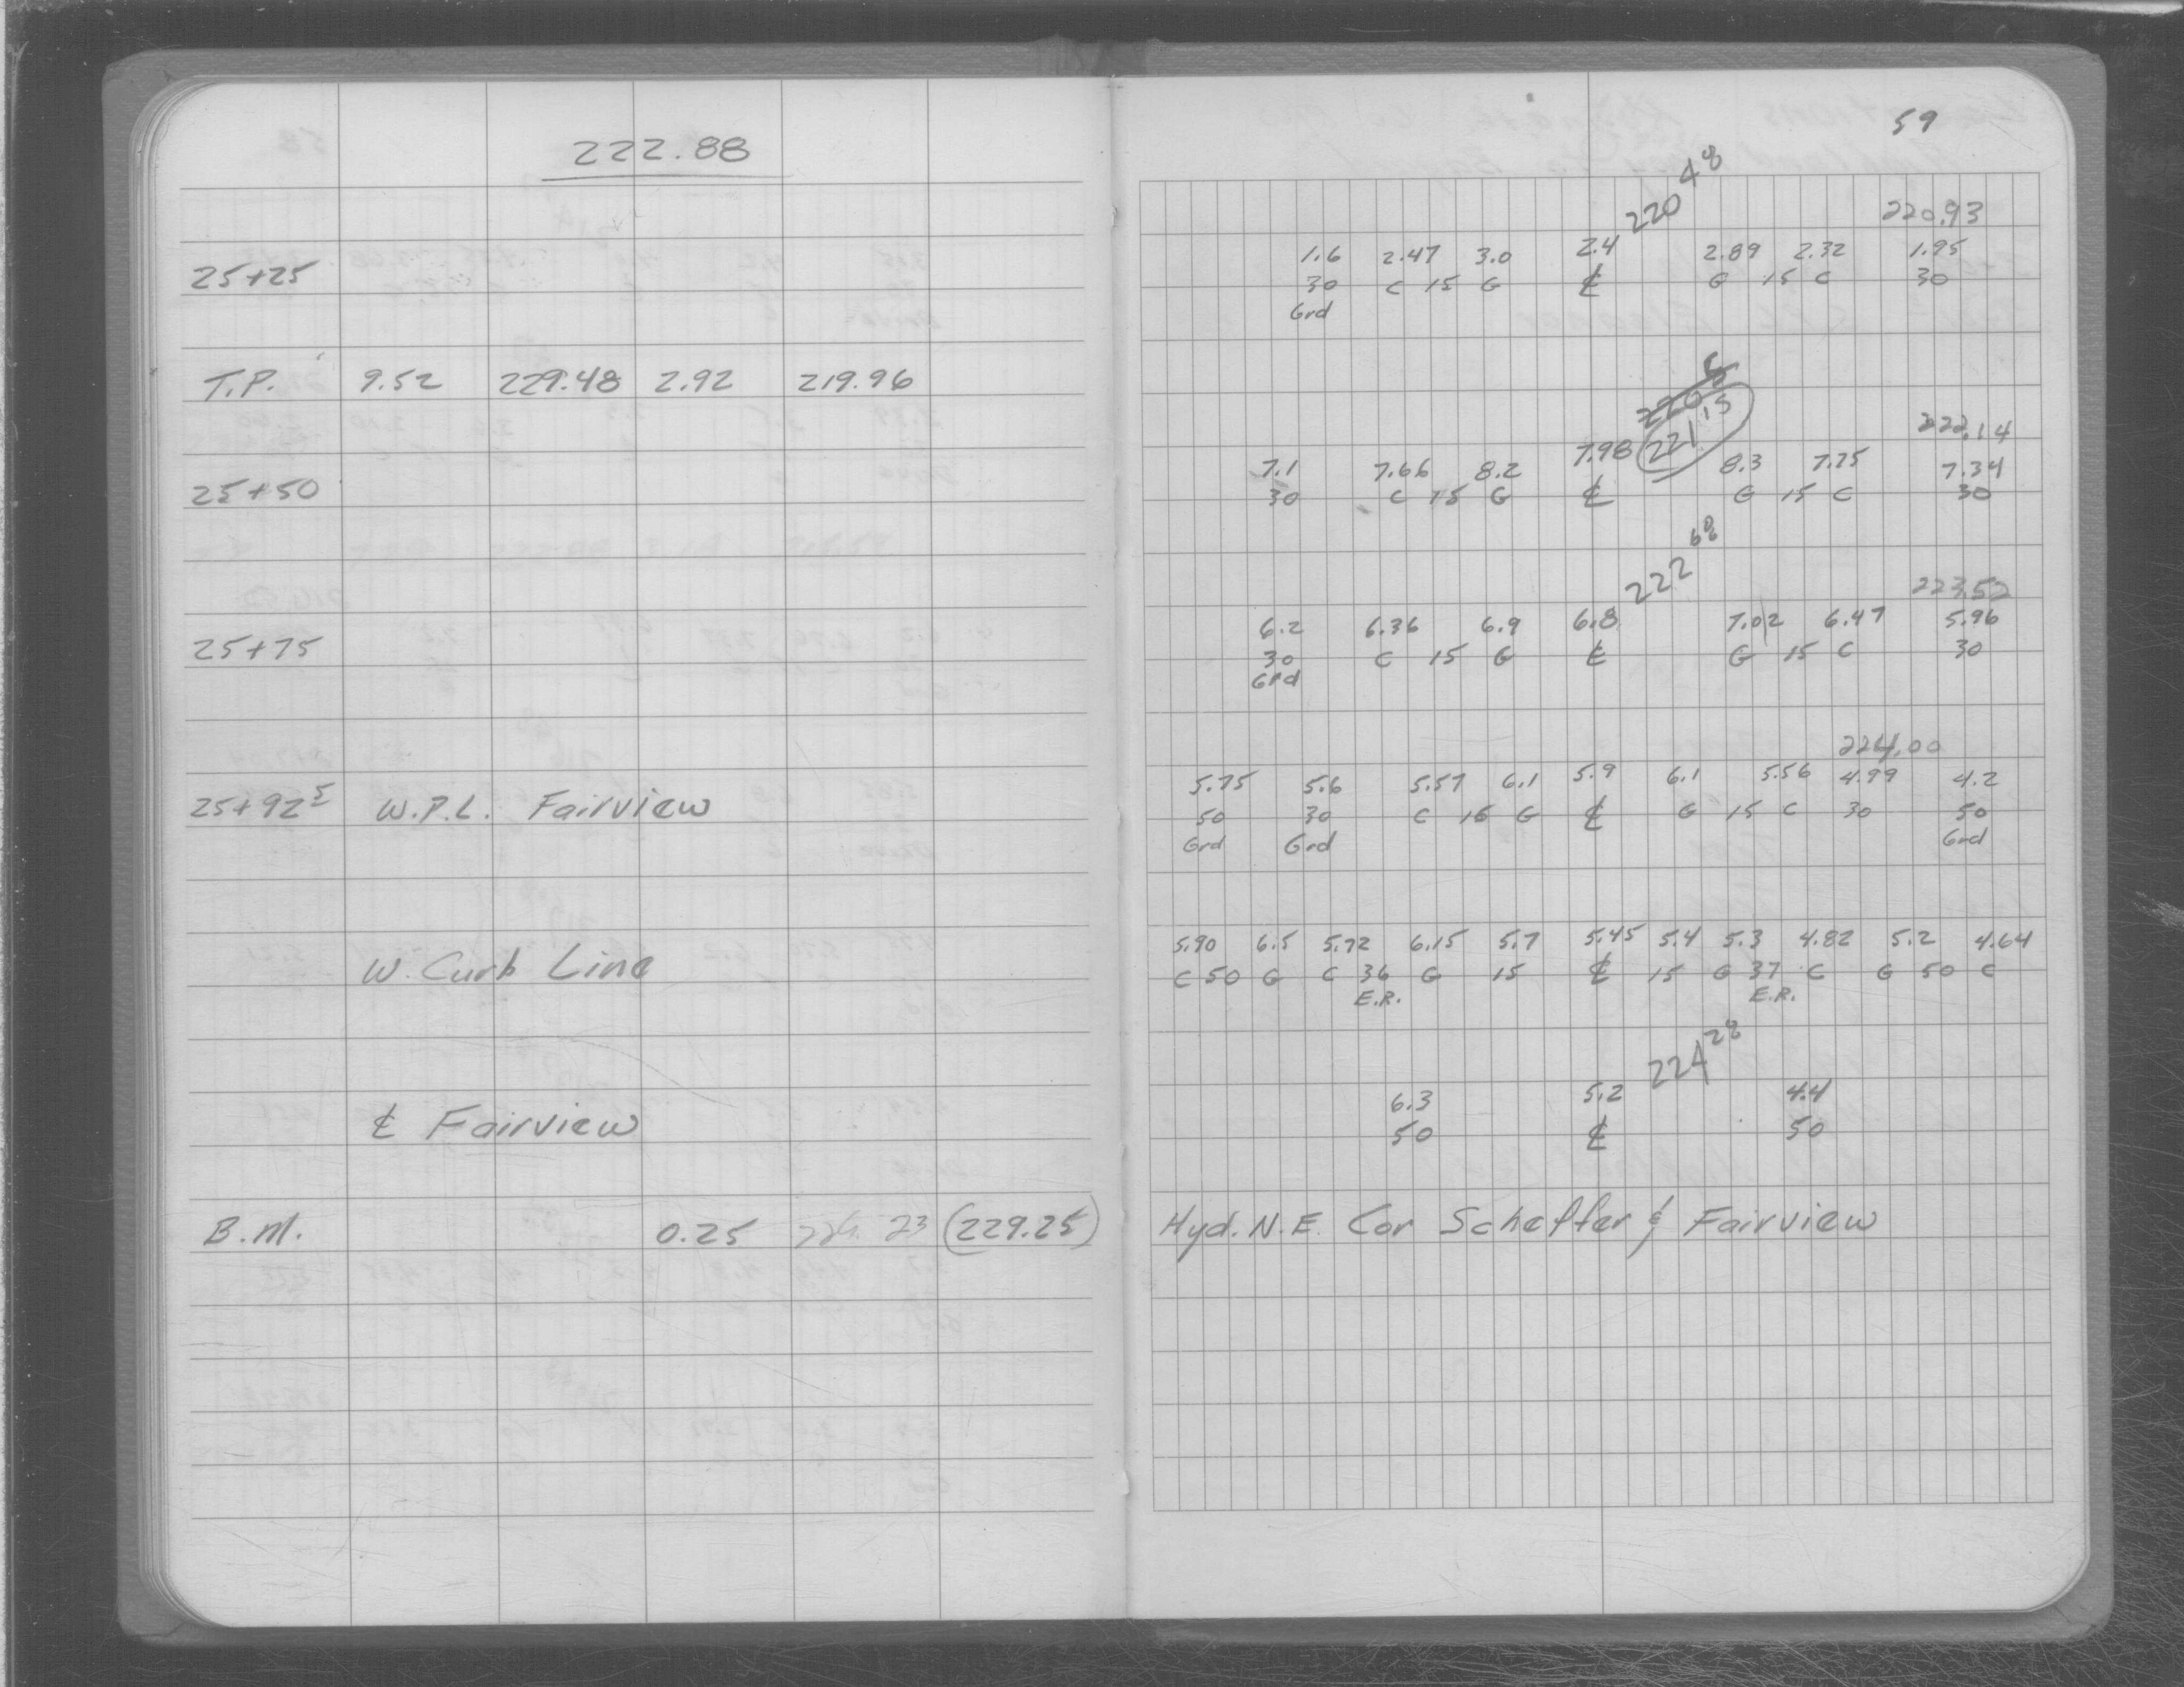 222.88
25+25
T.P. 9.52 229.48 2.92 219.96
25+50
25+75
25+92⁵ W.P.L. Fairview
W. Curb Line
℄ Fairview
B.M. 0.25 (229.25)
59
220⁴⁸ 220.93
1.6 2.47 3.0 2.4 2.89 2.32 1.95
30 C 15 G ℄ G 15 C 30
Grd
221.¹⁵ 222.14
7.1 7.66 8.2 7.98 8.3 7.75 7.34
30 C 15 G ℄ G 15 C 30
222⁶⁸ 223.52
6.2 6.36 6.9 6.8 7.02 6.47 5.96
30 C 15 G ℄ G 15 C 30
Grd
224.00
5.75 5.6 5.57 6.1 5.9 6.1 5.56 4.99 4.2
50 30 C 15 G ℄ G 15 C 30 50
Grd Grd Grd
5.90 6.5 5.72 6.15 5.7 5.45 5.4 5.3 4.82 5.2 4.64
C 50 G C 36 G 15 ℄ 15 G 37 C G 50 C
E.R. E.R.
224²⁸
6.3 5.2 4.4
50 ℄ 50
Hyd. N.E. Cor Scheffer & Fairview